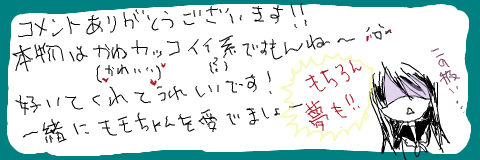 コメントありがとうございます!!
本物はかわカッコイイ系ですもんね〜
(かわいい)
(?)
好いてくれてうれしいです!
一緒にももちゃんを愛でましょー
もちろん
夢も!!
この扱い…